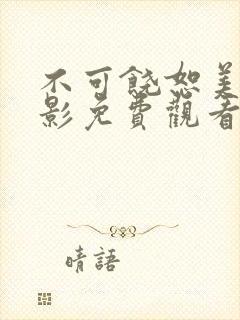 不可饶恕美
影免費觀看
晴語